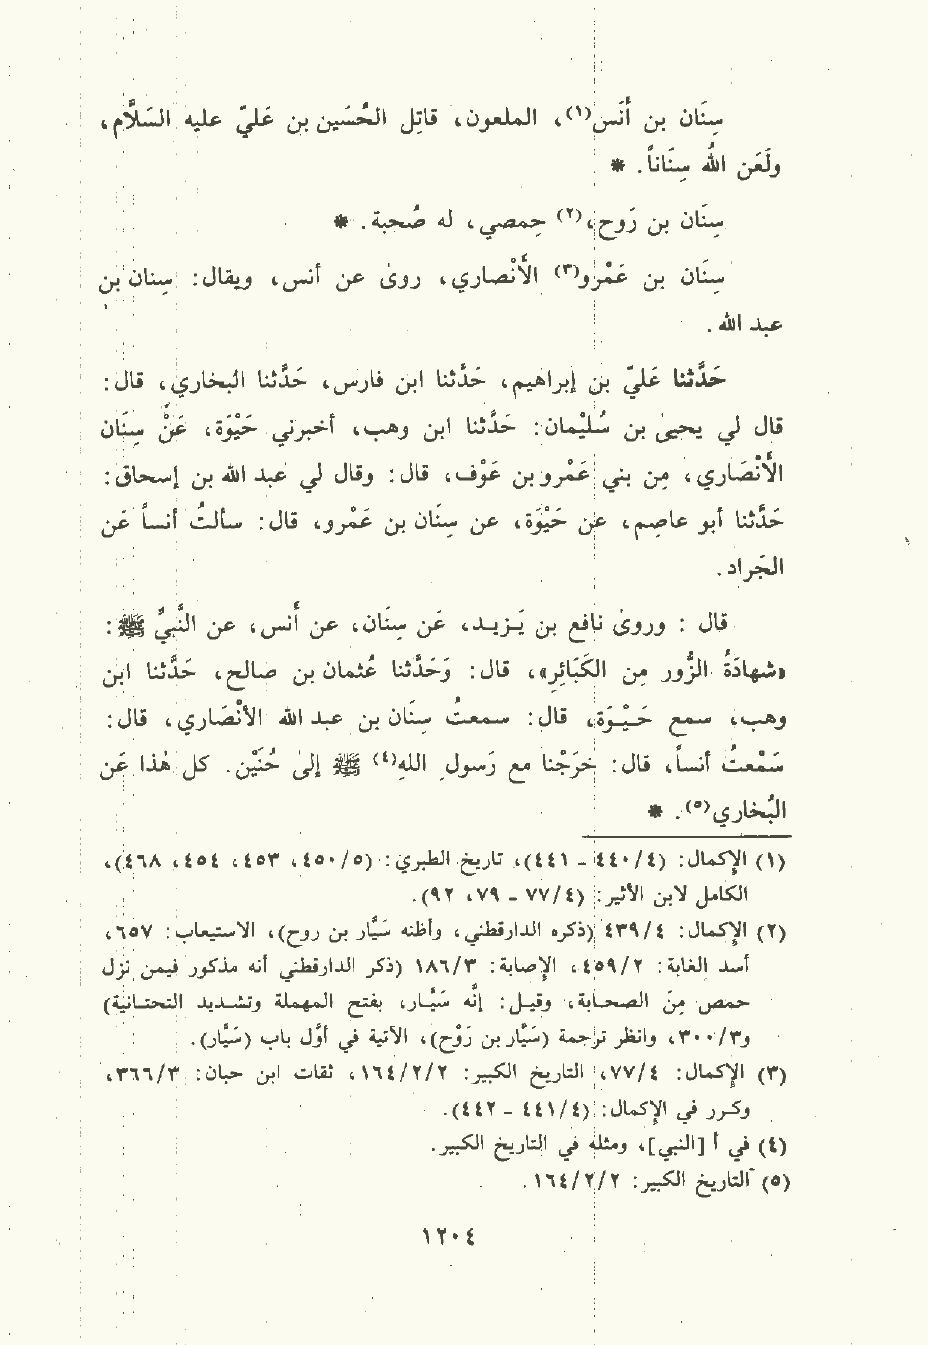 سِنَان بن أَنَس(١)، الملعون، قاتِل الحُسَين بن عَليّ عليه السَلاَّم،
ولَعَن اللهُ سِنَاناً. *
سِنَان بن رَوح،(٢) حِمصي، له صُحبة. *
سِنَان بن عَمْرو(٣) الأَنْصاري، روىٰ عن أنس، ويقال: سِنان بن
عبد الله.
حَدَّثنا عَليّ بن إبراهيم، حَدَّثنا ابن فارس، حَدَّثنا البُخاري، قال:
قال لي يحيىٰ بن سُليْمان: حَدَّثنا ابن وهب، أخبرني حَيْوَة، عَنْ سِنَان
الأَنْصَاري، مِن بني عَمْرو بن عَوْف، قال: وقال لي عبد الله بن إسحاق:
حَدَّثنا أبو عاصِم، عن حَيْوَة، عن سِنَان بن عَمْرو، قال: سألتُ أنساً عَن
الجَراد.
قال : وروىٰ نافع بن يَـزيـد، عَن سِنَان، عن أَنس، عن النَّبيِّ ﷺ:
«شهادَةُ الزُّور مِن الكَبَائِر»، قال: وَحَدَّثنا عُثمان بن صالح، حَدَّثنا ابن
وهب، سمع حَـيْـوَة، قال: سمعتُ سِنَان بن عبد الله الأنْصَاري، قال:
سَمْعتُ أنساً، قال: خَرَجْنا مع رَسول الله(٤) ﷺ إلىٰ حُنَيْن. كل هٰذا عَن
البُخاري(٥). *
(١) الإكمال: (٤/٤٤٠ - ٤٤١)، تاريخ الطبري: (٥/٤٥٠، ٤٥٣، ٤٥٤، ٤٦٨)،
الكامل لابن الأثير: (٤/٧٧ - ٧٩، ٩٢).
(٢) الإكمال: ٤/٤٣٩ (ذكره الدارقطني، وأظنه سَيَّار بن روح)، الاستيعاب: ٦٥٧،
أسد الغابة: ٢/٤٥٩، الإصابة: ٣/١٨٦ (ذكر الدارقطني أنه مذكور فيمن نزل
حمص مِنَ الصحـابة، وقيـل: إنَّه سَيَّـار، بفتح المهملة وتشـديد التحتـانية)
و٣/٣٠٠، وانظر ترجمة (سَيَّار بن رَوْح)، الآتية في أوَّل باب (سَيَّار).
(٣) الإكمال: ٤/٧٧، التاريخ الكبير: ٢/٢/١٦٤، ثقات ابن حبان: ٣/٣٦٦،
وكـرر في الإكمال: (٤/٤٤١ - ٤٤٢).
(٤) في أ [النبي]، ومثله في التاريخ الكبير.
(٥) التاريخ الكبير: ٢/٢/١٦٤.
١٢٠٤